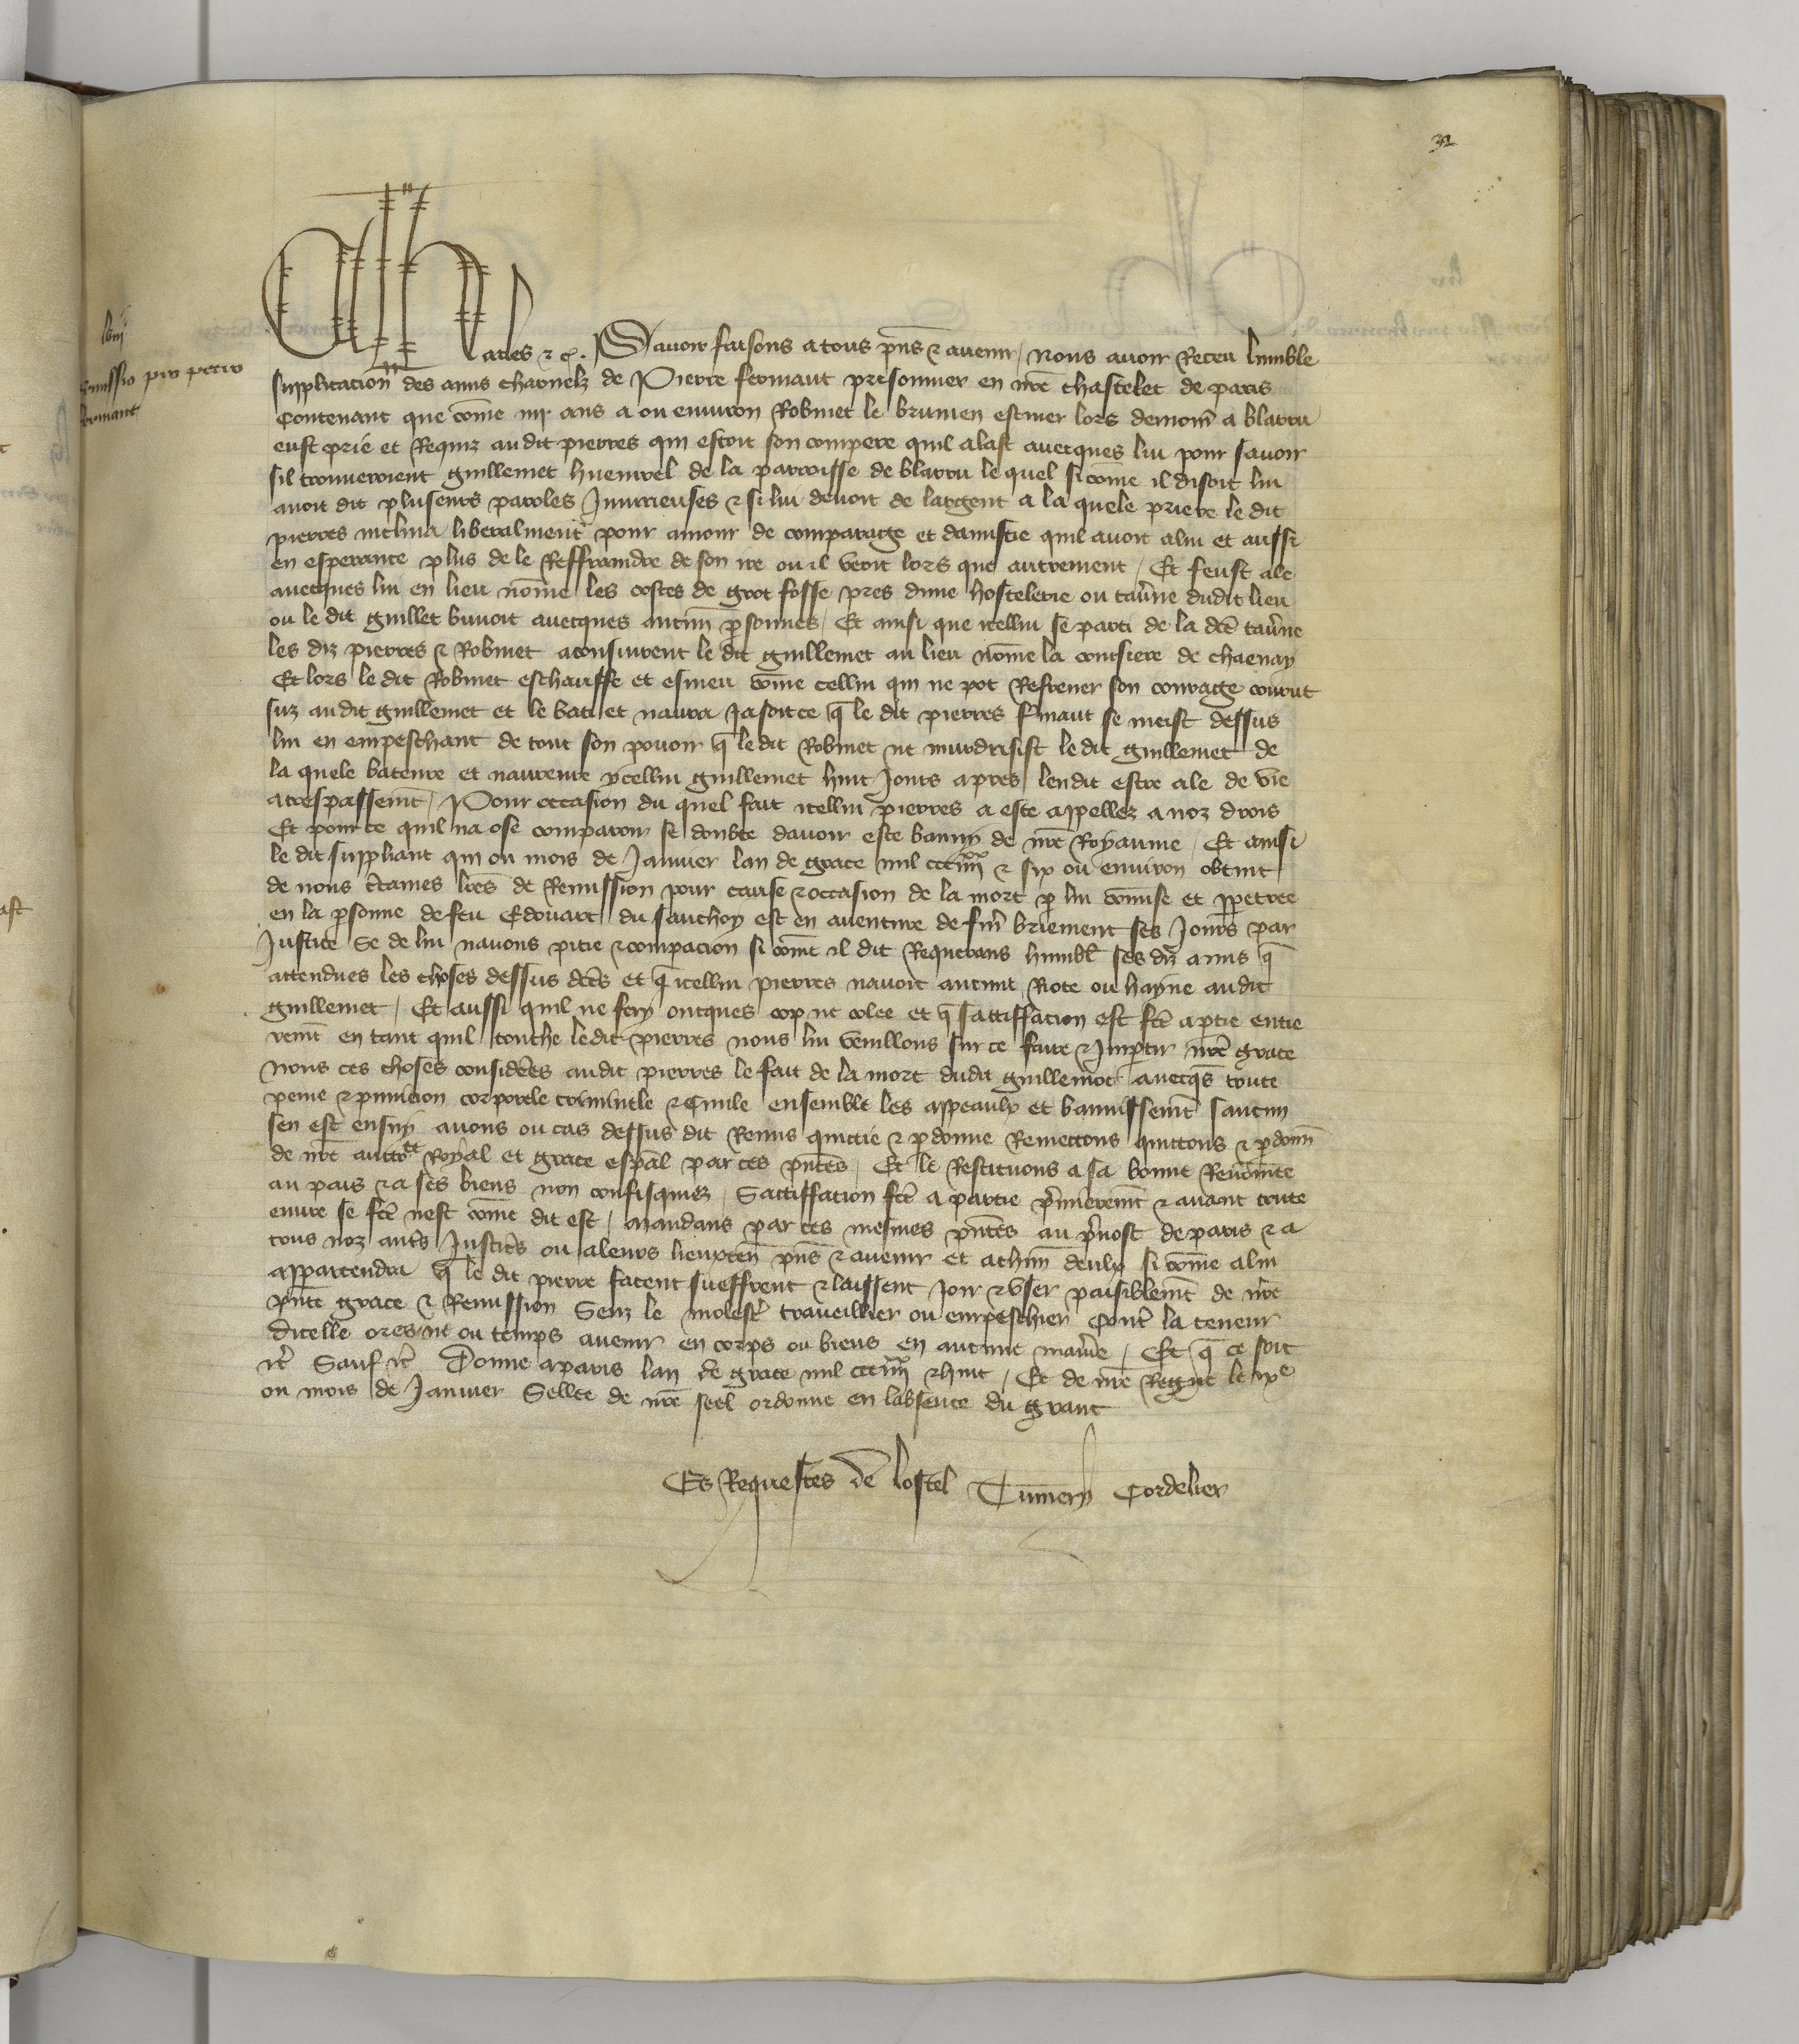 32
liiij
Remissio pro petro
fermant
Charles &c. Savoir faisons a tous pn̄s & avenir / nous avoir Receu lumble
supplicacion des amis charnelz de Pierre fermant prisonnier en nr̄e chastelet de paris
Contenant que cōme iiij ans a ou environ Robinet le brumen escuier lors demor̄ a blarru
eust prie et Requiz au dit pierres qui estoit son compere quil alast avecques lui pour savoir
sil trouveroient guillemet huemrel de la parroisse de blarru le quel si cōme il disoit lui
avoit dit pluseurs paroles Jniurieuses & si lui devoit de largent a la quele priere le dit
pierres inclina liberalment pour amour de comparage et damistie quil avoit a lui et aussi
en esperance plus de le Reffraindre de son ire ou il veoit lors que autrement / Et feust ale
avecques lui en lieu nōme les costes de grot fosse pres dune hostelerie ou tav̄ne dudit lieu
ou le dit guillet buvoit avecques aucun̄ p̄sonnes / Et ainsi que icellui se parti de la dc̄e tav̄ne
les diz pierres & Robinet aconsuirent le dit guillemet au lieu nōme la cousiere de chaenay
Et lors le dit Robinet eschauffe et esmeu cōme cellui qui ne pot Refrener son courage courut
suz au dit guillemet et le bati et navra Ja soit ce q̄ le dit pierres f̄maut se meist dessus
lui en empeschant de tout son povoir q̄ le dit Robinet ne murdrisist le dit guillemet de
la quele bateure et navreure ycellui guillemet huit Jours apres lendit estre ale de vie
a trespassemt̄ / Pour occasion du quel fait icellui pierres a este appellez a noz drois
Et pour ce quil na ose comparoir se doubte davoir este banny de nr̄e Royaume / Et ainsi
le dit suppliant qui ou mois de Janvier lan de grace mil ccc iiijxx & six ou environ obtint
de nous c̄taines lr̄es de Remission pour cause & occasion de la mort p̄ lui cōmise et ppetree
en la p̄sonne de feu Edouart du sauchoy est en aventure de fin̄ briement ses Jours par
Justice Se de lui navons pitie & compacion si cōme il dit Requerans humbl̄ ses diz amis q̄
attendues les choses dessus dc̄es et q̄ icellui pierres navoit aucune Riote ou hayne au dit
guillemet / Et aussi quil ne fery oncques cop ne colee et q̄ sattiffacion est fc̄e a p̄tie entie
remt̄ en tant quil touche le dit pierres nous lui vueillons sur ce faire & Jmp̄tir nr̄e grace
Nous ces choses considerees au dit pierres le fait de la mort dudit guillemot avecq̄s toute
peine & punicion corporele criminele & Civile ensemble les appeaulx et bannissemt̄ saucun
sen est ensuy avons ou cas dessus dit Remis quictie & p̄donne Remettons quittons & p̄donn̄
de nr̄e auctorite Royal et grace esp̄al par ces pn̄tes / Et le Restituons a sa bonne Renōmee
au pais & a ses biens non confisquiez / Sattiffacion fc̄e a partie p̄mieremt̄ & avant toute
euvre se fc̄e nest cōme dit est / Mandans par ces mesmes pn̄tes au p̄vost de paris & a
tous noz autr̄s Justic̄s ou a leurs lieuxten̄ pn̄s & avenir et a chun̄ deulx si cōme a lui
appartendra q̄ le dit pierre facent sueffrent & laissent Joir & user paisiblemt̄ de nr̄e
pn̄te grace & Remission Senz le molest̄ traveillier ou empeschier Contr̄ la teneur
dicelle ores ne ou temps avenir en corps ou biens en aucune man̄e / Et q̄ ce soit
&c̄ Sauf &c̄ Donne a paris lan de grace mil ccc iiijxx & huit / Et de nr̄e Regne le ixe
ou mois de Janvier Sellee de nr̄e seel ordonne en labsence du grant
Es Requestes de lostel Tumery Cordelier